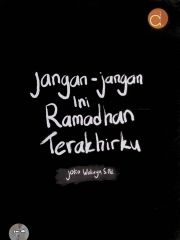 Jangan-jangan
Ini
Ramadhan
Terakhirku
Joko Wahoyo S.Pd.